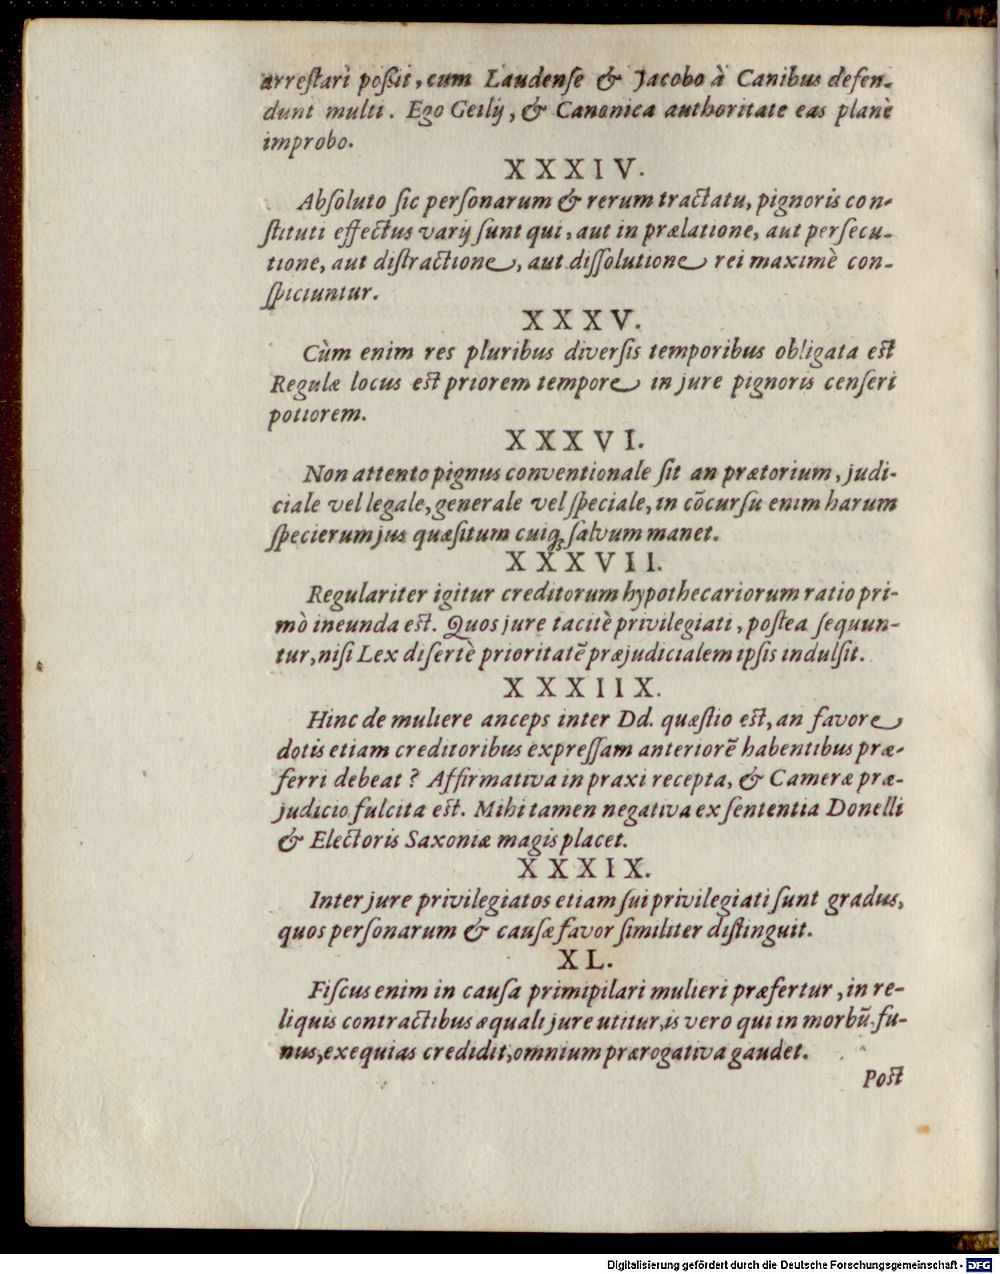 arreſtari poßit, cum Laudenſe & Jacobo à Canibus defen-
dunt multi. Ego Geilij, & Canonica authoritate eas planè
improbo.
XXXIV.
Abſoluto ſic perſonarum & rerum tractatu, pignoris con-
ſtituti effectus varij ſunt qui, aut in prælatione, aut perſecu-
tione, aut diſtractione, aut diſſolutione rei maximè con-
ſpiciuntur.
XXXV.
Cùm enim res pluribus diverſis temporibus obligata eſt
Regulæ locus eſt priorem tempore in jure pignoris cenſeri
potiorem.
XXXVI.
Non attento pignus conventionale ſit an prætorium, judi-
ciale vel legale, generale vel ſpeciale, in cõcurſu enim harum
ſpecierum jus quæſitum cuiq; ſalvum manet.
XXXVII.
Regulariter igitur creditorum hypothecariorum ratio pri-
mò ineunda eſt. Quos jure tacitè privilegiati, poſtea ſequun-
tur, niſi Lex diſertè prioritatẽ præjudicialem ipſis indulſit.
XXXIIX.
Hinc de muliere anceps inter Dd. quæſtio eſt, an favore
dotis etiam creditoribus expreſſam anteriorẽ habentibus præ-
ferri debeat? Affirmativa in praxi recepta, & Cameræ præ-
judicio fulcita eſt. Mihi tamen negativa ex ſententia Donelli
& Electoris Saxoniæ magis placet.
XXXIX.
Inter jure privilegiatos etiam ſui privilegiati ſunt gradus,
quos perſonarum & cauſæ favor ſimiliter diſtinguit.
XL.
Fiſcus enim in cauſa primipilari mulieri præfertur, in re-
liquis contractibus æquali jure utitur, is vero qui in morbũ, fu-
nus, exequias credidit, omnium prærogativa gaudet.
Poſt
Digitalisierung gefördert durch die Deutsche Forschungsgemeinschaft - DFG